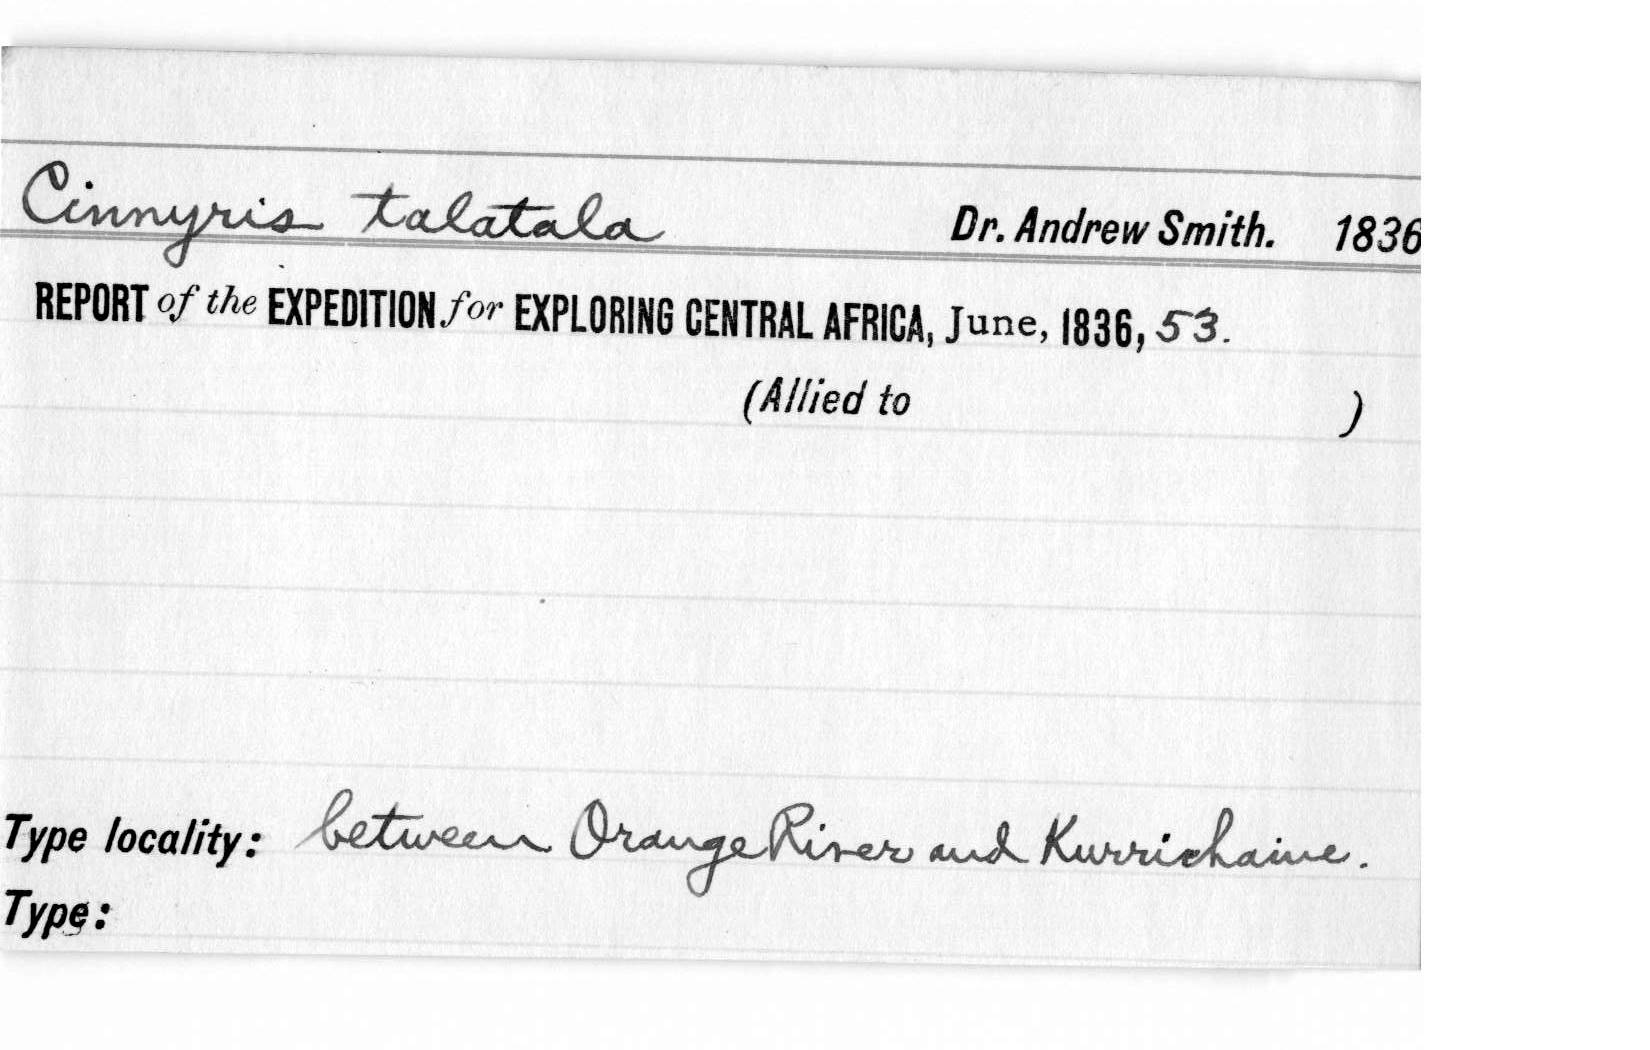 Cinnyris talatala Dr. Andrew Smith. 1836
REPORT of the EXPEDITION for EXPLORING CENTRAL AFRICA, June, 1836, 53.
(Allied to )
Type locality: between Orange River and Kurrichaine.
Type: